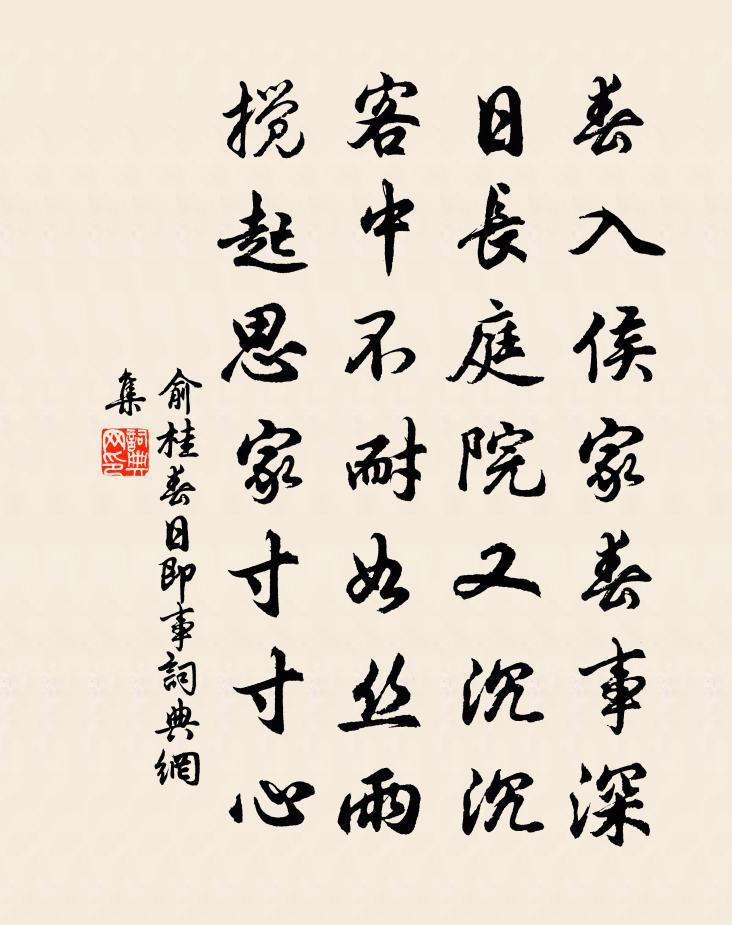 春入侯家春事深
日長庭院又沉沉
客中不耐如丝雨
搅起思家寸寸心
俞桂春日即事詞典網
集
詞典
网印